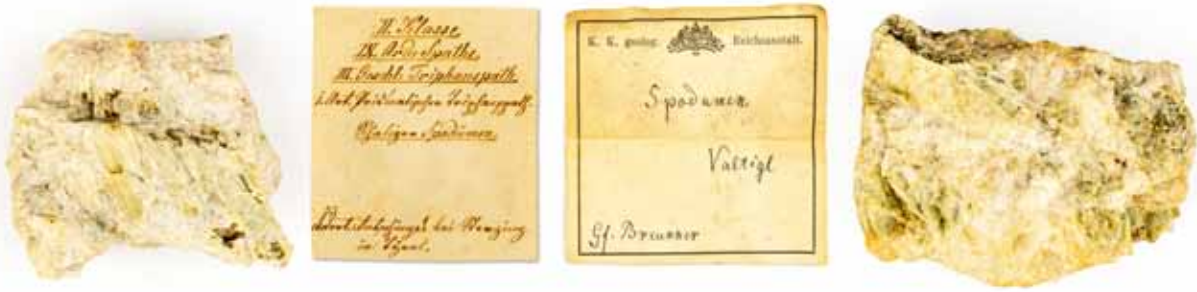 II. Klasse
IX. Ord. Spathe
III. Geschl. Triphanspath
1. Art. Prismatischer Triphanspath
Spodumen
bei Sterzing
in Tyrol.
K. K. geolog. Reichsanstalt.
Spodumen
Valtigl
Gf. Breunner